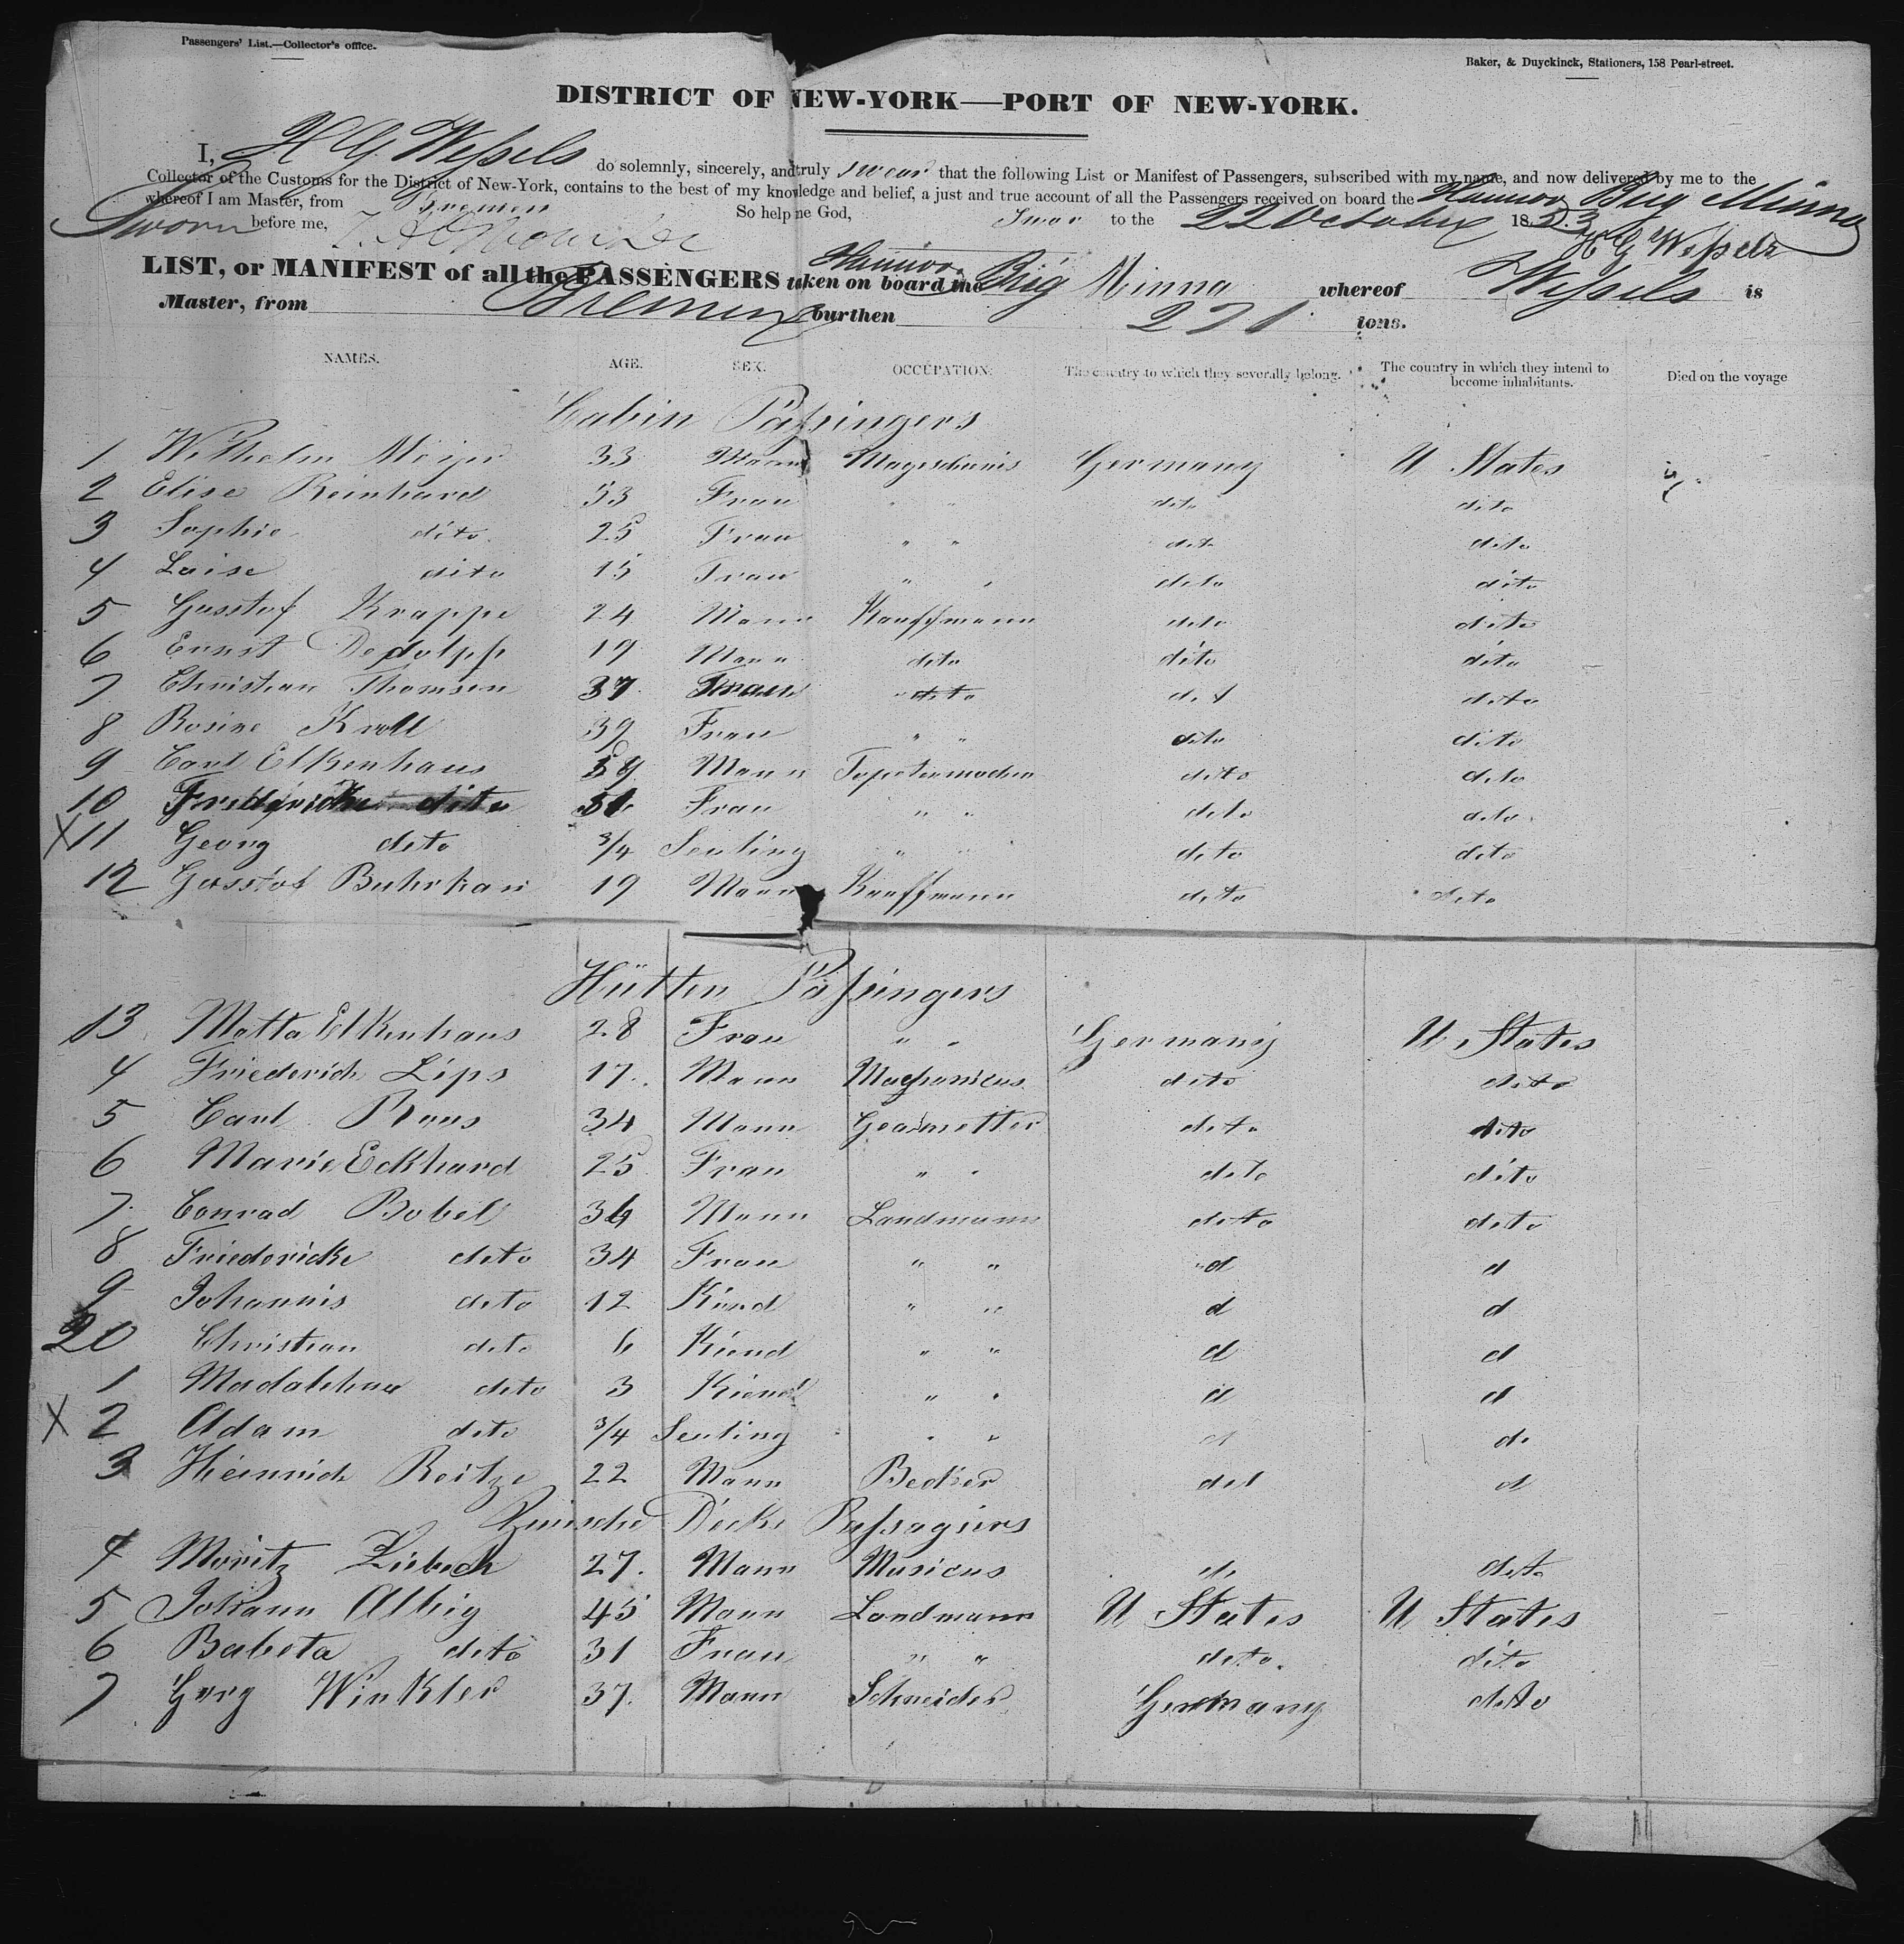 Passengers' List.—Collector's office.
Baker, & Duyckinck, Stationers, 158 Pearl-street.
DISTRICT OF NEW-YORK—PORT OF NEW-YORK.
I, H G Wessels do solemnly, sincerely, and truly swear that the following List or Manifest of Passengers, subscribed with my name, and now delivered by me to the
Collector of the Customs for the District of New-York, contains to the best of my knowledge and belief, a just and true account of all the Passengers received on board the Hannov Brig Minna
whereof I am Master, from Bremen
So help me God,
Sworn before me, to the 22 October 1853
H G Wessels
LIST, or MANIFEST of all the PASSENGERS taken on board the Hannov. Brig Minna whereof Wessels is
Master, from Bremen burthen 221 tons.
NAMES. AGE. SEX. OCCUPATION. The country to which they severally belong. The country in which they intend to become inhabitants. Died on the voyage
Cabin Passingers
1 Wilhelm Meijer 33 Mann Germany U States
2 Elise Reinhard 53 Frau " " dito dito
3 Sophie dito 25 Frau " " dito dito
4 Luise dito 15 Frau " " dito dito
5 Gusstof Krappe 24 Mann Kauffmann dito dito
6 Ernst Dedolpf 19 Mann dito dito dito
7 Christian Thomsen 37 dito dit dito
8 Rosine Kroll 39 Frau " " dito dito
9 Carl Elkenhaus 59 Mann Tapetenmacher dito dito
10 Fredericke dito 51 Frau " " dito dito
X 11 Georg dito 3/4 Seuling " " dito dito
12 Gusstof Buhrkan 19 Mann Kauffmann dito dito
Hütten Passingers
13 Metta Elkenhaus 28 Frau " " Germany U States
4 Friederich Lips 17 Mann Mechanicus dito dito
5 Carl Roos 34 Mann Geaometter dito dito
6 Marie Eckhard 25 Frau " " dito dito
7 Conrad Bobel 36 Mann Landmann dito dito
8 Friedericke dito 34 Frau " " d d
9 Johannis dito 12 Kind " " d d
20 Christian dito 6 Kind " " d d
1 Madalehna dito 3 Kind " " d d
X 2 Adam dito 3/4 Seuling " " d d
3 Heinrich Reitze 22 Mann Becker dit d
Zwischen Decks Passagiers
4 Moritz Liebich 27 Mann Musicus d dito
5 Johann Albig 45 Mann Landmann U States U States
6 Babeta dito 31 Frau " " dito dito
7 Gorg Winkler 37 Mann Schneider Germany dito